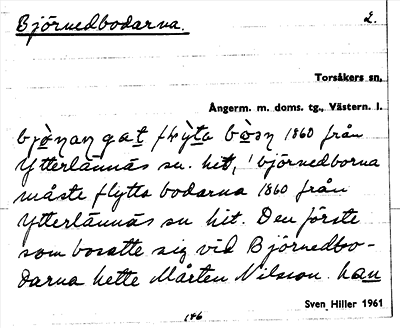 Björnedbodarna.
2.
Torsåkers sn,
Ångerm. m. doms. tg., Västern. l.
bjònaṇ gat flỳta bòsṇ 1860 från
Ytterlännäs sn. hit, 'björnedborna
måste flytta bodarna 1860 från
Ytterlännäs sn hit. Den förste
som bosatte sig vid Björnedbo-
darna hette Mårten Nilsson. han
Sven Hiller 1961